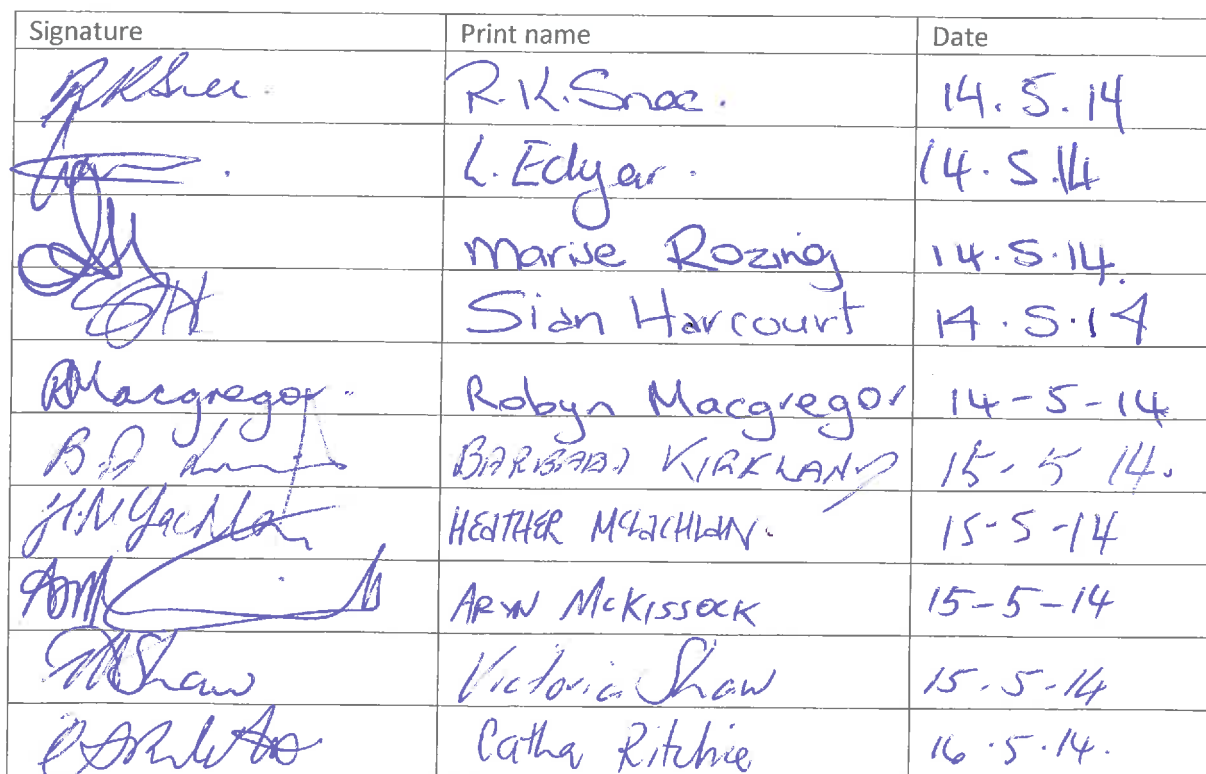 Signature Print name Date
R.K.Snoc. 14.5.14
L. Edgar. 14.5.14
Marise Rozing 14.5.14
Sian Harcourt 14.5.14
RMacgregor. Robyn Macgregor 14-5-14
BARBARA KIRKLAND 15-5 14.
HEATHER MCLACHLAN. 15-5-14
ARYN MCKISSOCK 15-5-14
Shaw Victoria Shaw 15-5-14
Catha Ritchie 16.5.14.